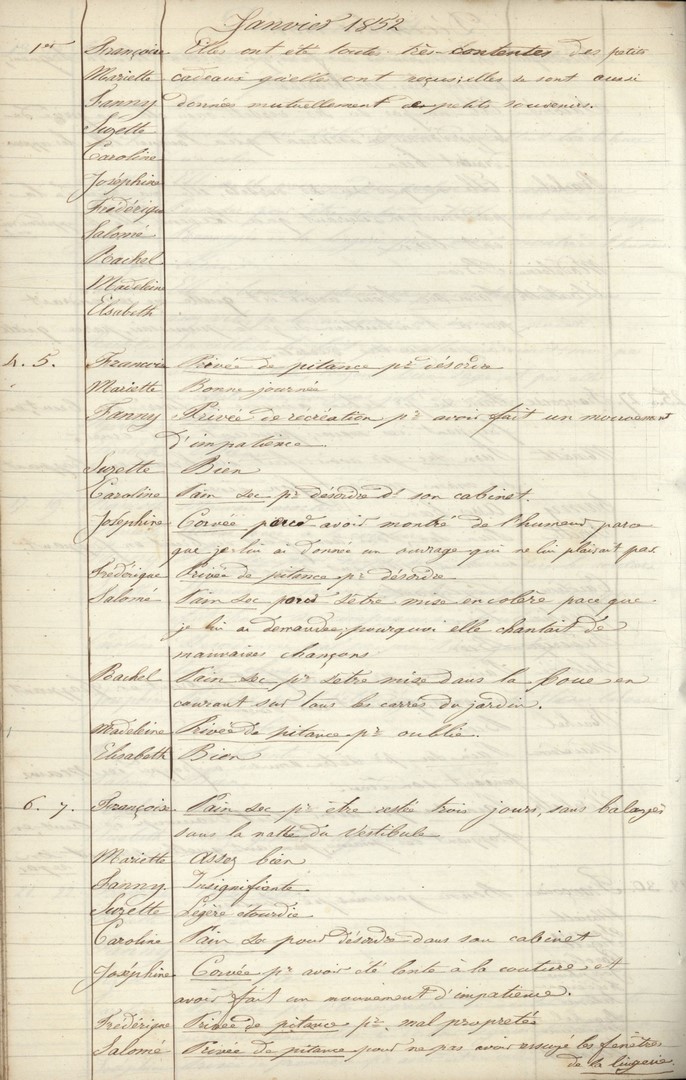 Janvier 1852
1er Françoise Elles ont été toutes très-contentes des petits
Mariette cadeaux qu'elles ont reçus; elles se sont aussi
Fanny données mutuellement des petits souvenirs.
Suzette
Caroline
Joséphine
Frédérique
Salomé
Rachel
Madeleine
Elisabeth
4. 5. Francoise Privée de pitance pr désordre
Mariette Bonne journée
Fanny Privée de recréation pr avoir fait un mouvement
d'impatience
Suzette Bien
Caroline Pain sec pr désordre ds son cabinet.
Joséphine Corvée parce avoir montré de l'humeur parce
que je lui ai donnée un ouvrage qui ne lui plaisait pas
Frédérique Privée de pitance pr désordre
Salomé Pain sec parce s'être mise en colère pace que
je lui ai demandée pourquoi elle chantait de
mauvaises chançons
Rachel Pain sec pr s'etre mise dans la boue en
courant sur tous les carres du jardin.
Madeleine Privée de pitance pr oublie.
Elisabeth Bien
6. 7. Françoise Pain sec pr être restée trois jours, sans balayer
sous la natte du Vestibule
Mariette assez bien
Fanny Insignifiante
Suzette Légère étourdie
Caroline Pain sec pour désordre dans son cabinet
Joséphine Corvée pr avoir été lente à la couture et
avoir fait un mouvement d'impatience.
Frédérique Privée de pitance pr mal propreté
Salomé Privée de pitance pour ne pas avoir essuyé les fenêtres
de la lingerie.